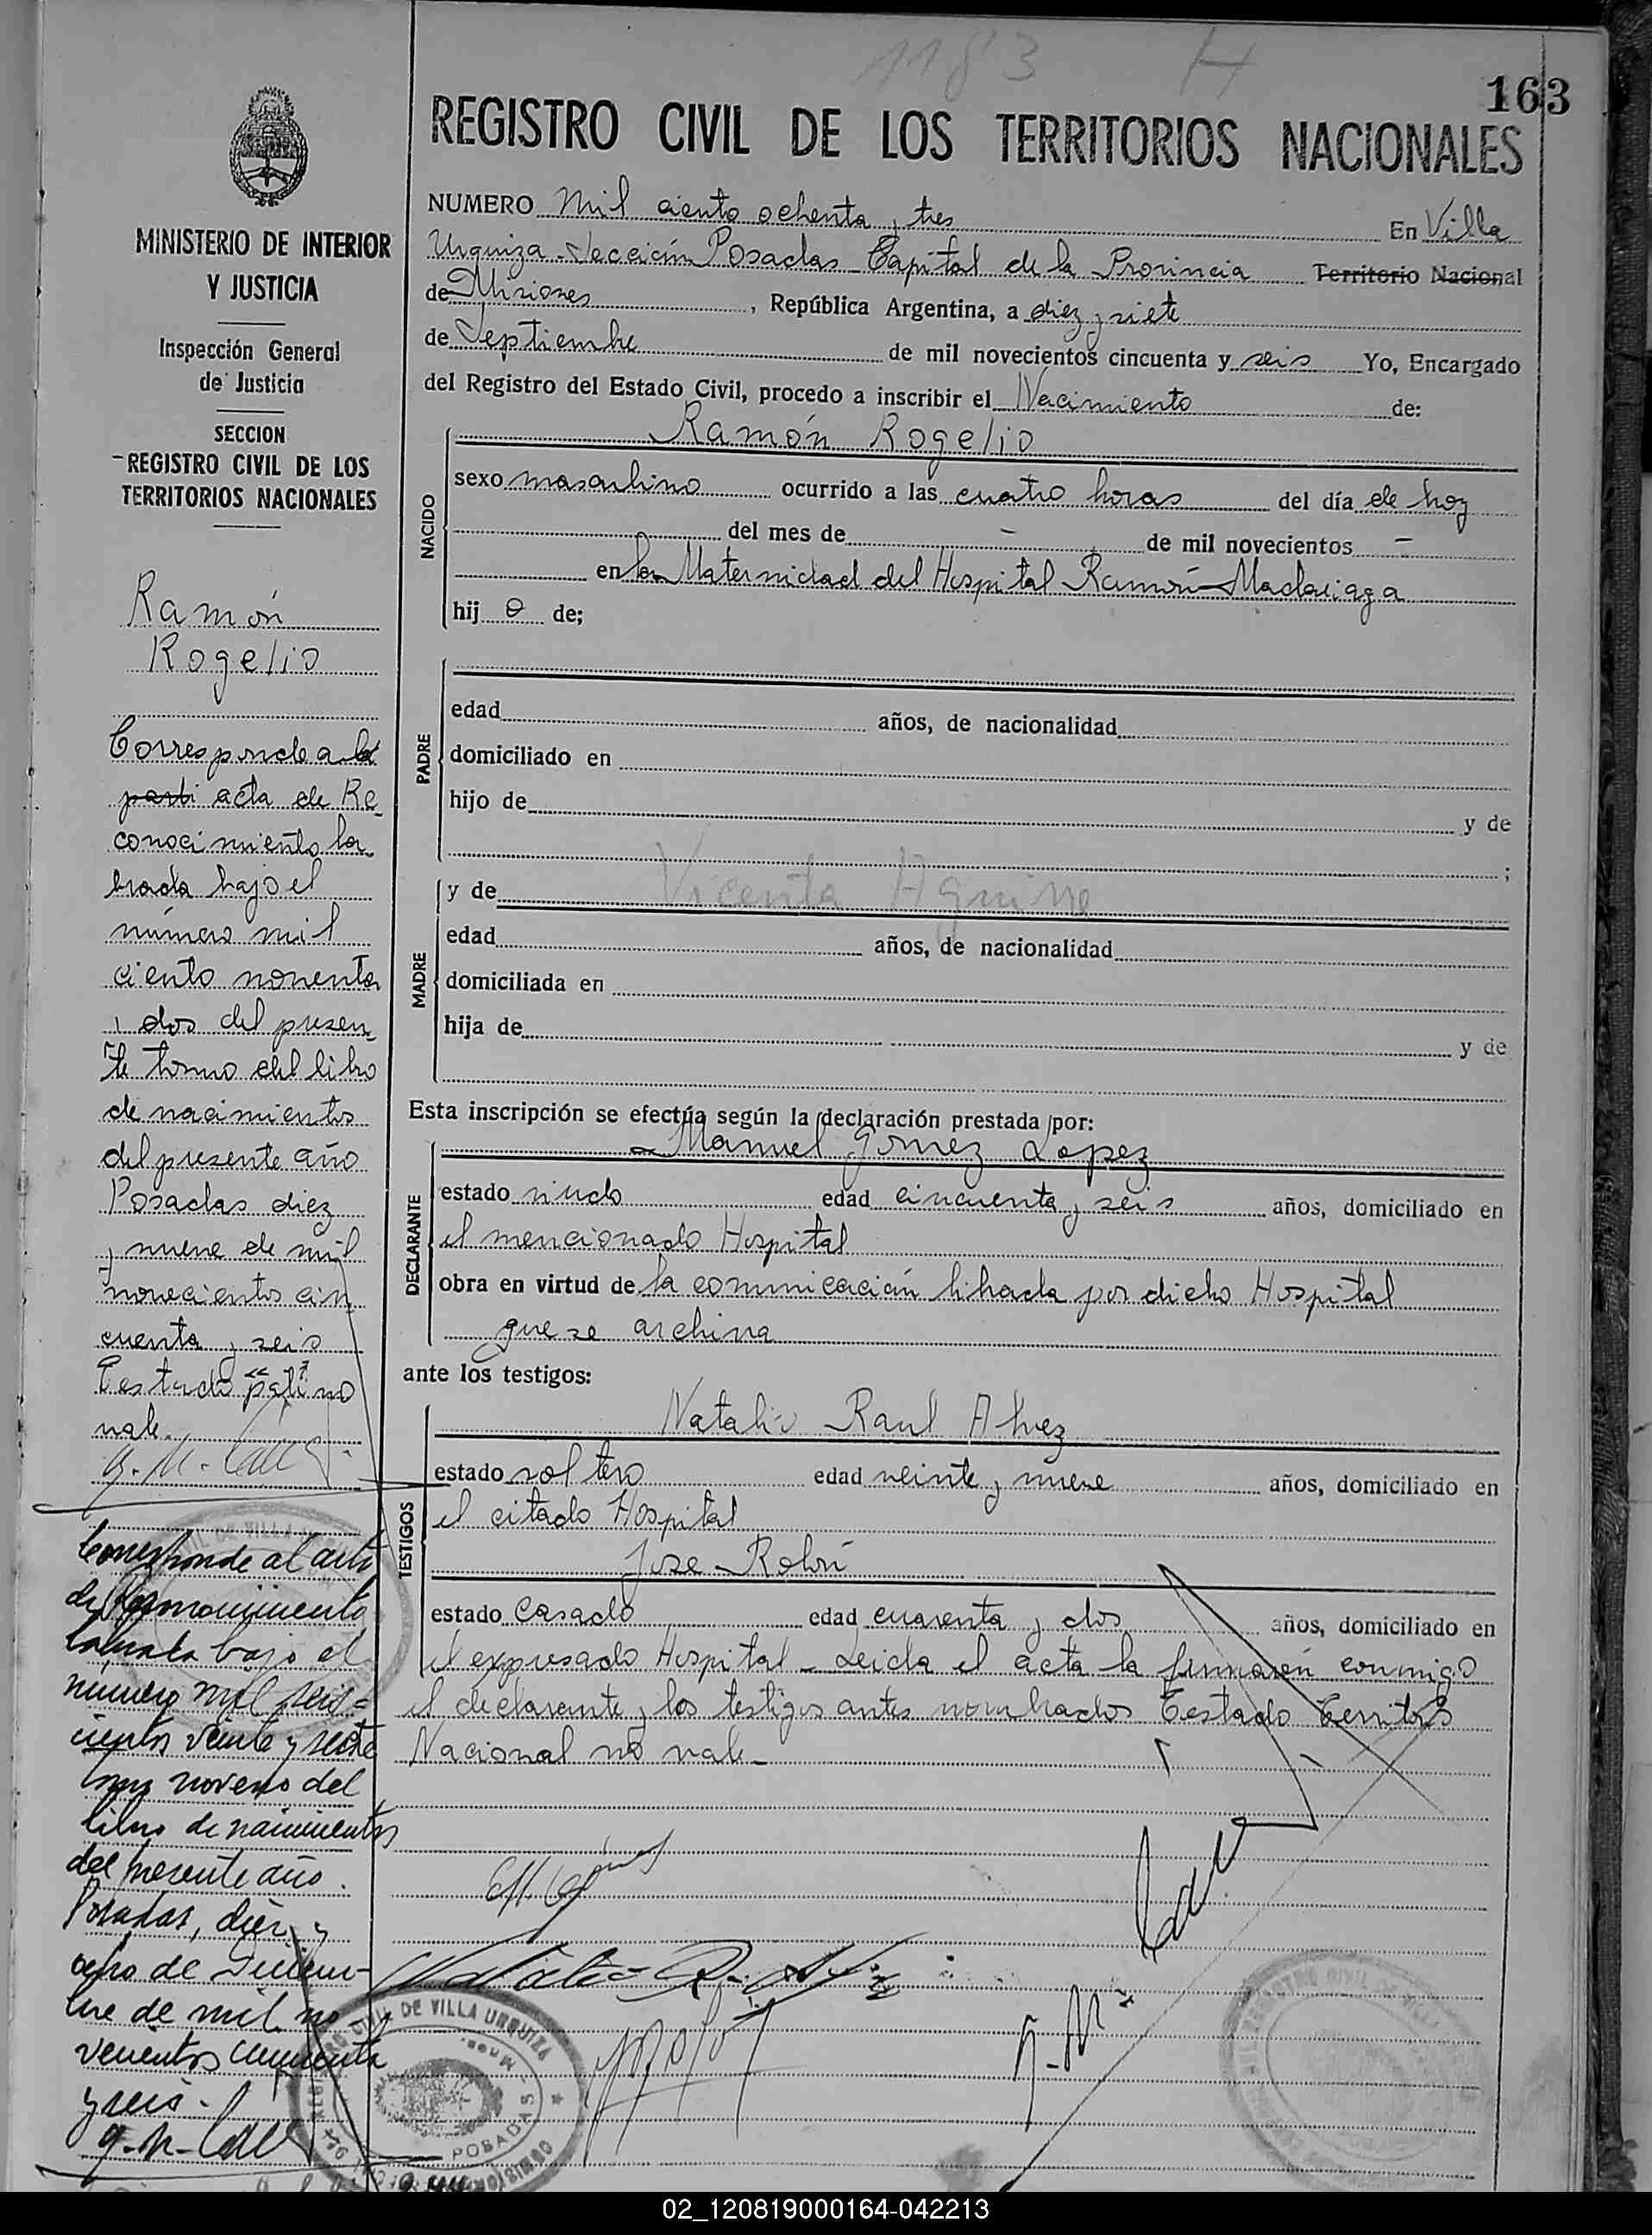 1183 H
163
REGISTRO CIVIL DE LOS TERRITORIOS NACIONALES
MINISTERIO DE INTERIOR
Y JUSTICIA
Inspección General
de Justicia
SECCION
REGISTRO CIVIL DE LOS
TERRITORIOS NACIONALES
Ramón
Rogelio
Corresponde a la
parti acta de Re
conocimiento la
brada bajo el
número mil
ciento noventa
y dos del presen
te tomo del libro
de nacimientos
del presente año
Posadas diez
y nueve de mil
novecientos cin
cuenta y seis
Testado "parti" no
vale.
Corresponde al acta
de Reconocimiento
labrada bajo el
número mil seis=
cientos veinte y siete
tomo noveno del
libro de nacimientos
del presente año.
Posadas, diez y
ocho de Diciem-
bre de mil no
vecientos cincuenta
y seis.-
NUMERO Mil ciento ochenta y tres En Villa
Urquiza - Sección Posadas Capital de la Provincia Territorio Nacional
de Misiones, República Argentina, a diez y siete
de Septiembre de mil novecientos cincuenta y seis Yo, Encargado
del Registro del Estado Civil, procedo a inscribir el Nacimiento de:
NACIDO
Ramón Rogelio
sexo masculino ocurrido a las cuatro horas del día de hoy
del mes de - de mil novecientos -
en la Maternidad del Hospital Ramón Madariaga
hij o de;
PADRE
edad años, de nacionalidad
domiciliado en
hijo de y de
;
MADRE
y de Vicenta Aguirre
edad años, de nacionalidad
domiciliada en
hija de y de
Esta inscripción se efectúa según la declaración prestada por:
DECLARANTE
Manuel Gomez Lopez
estado viudo edad cincuenta y seis años, domiciliado en
el mencionado Hospital
obra en virtud de la comunicación librada por dicho Hospital
que se archiva
ante los testigos:
TESTIGOS
Natalio Raul Alvez
estado soltero edad veinte y nueve años, domiciliado en
el citado Hospital
Jose Robri
estado casado edad cuarenta y dos años, domiciliado en
el expresado Hospital - Leida el acta la firmaron conmigo
el declarante y los testigos antes nombrados Testado Territorio
Nacional no vale -
DE VILLA URQUIZA
POSADAS
02_120819000164-042213